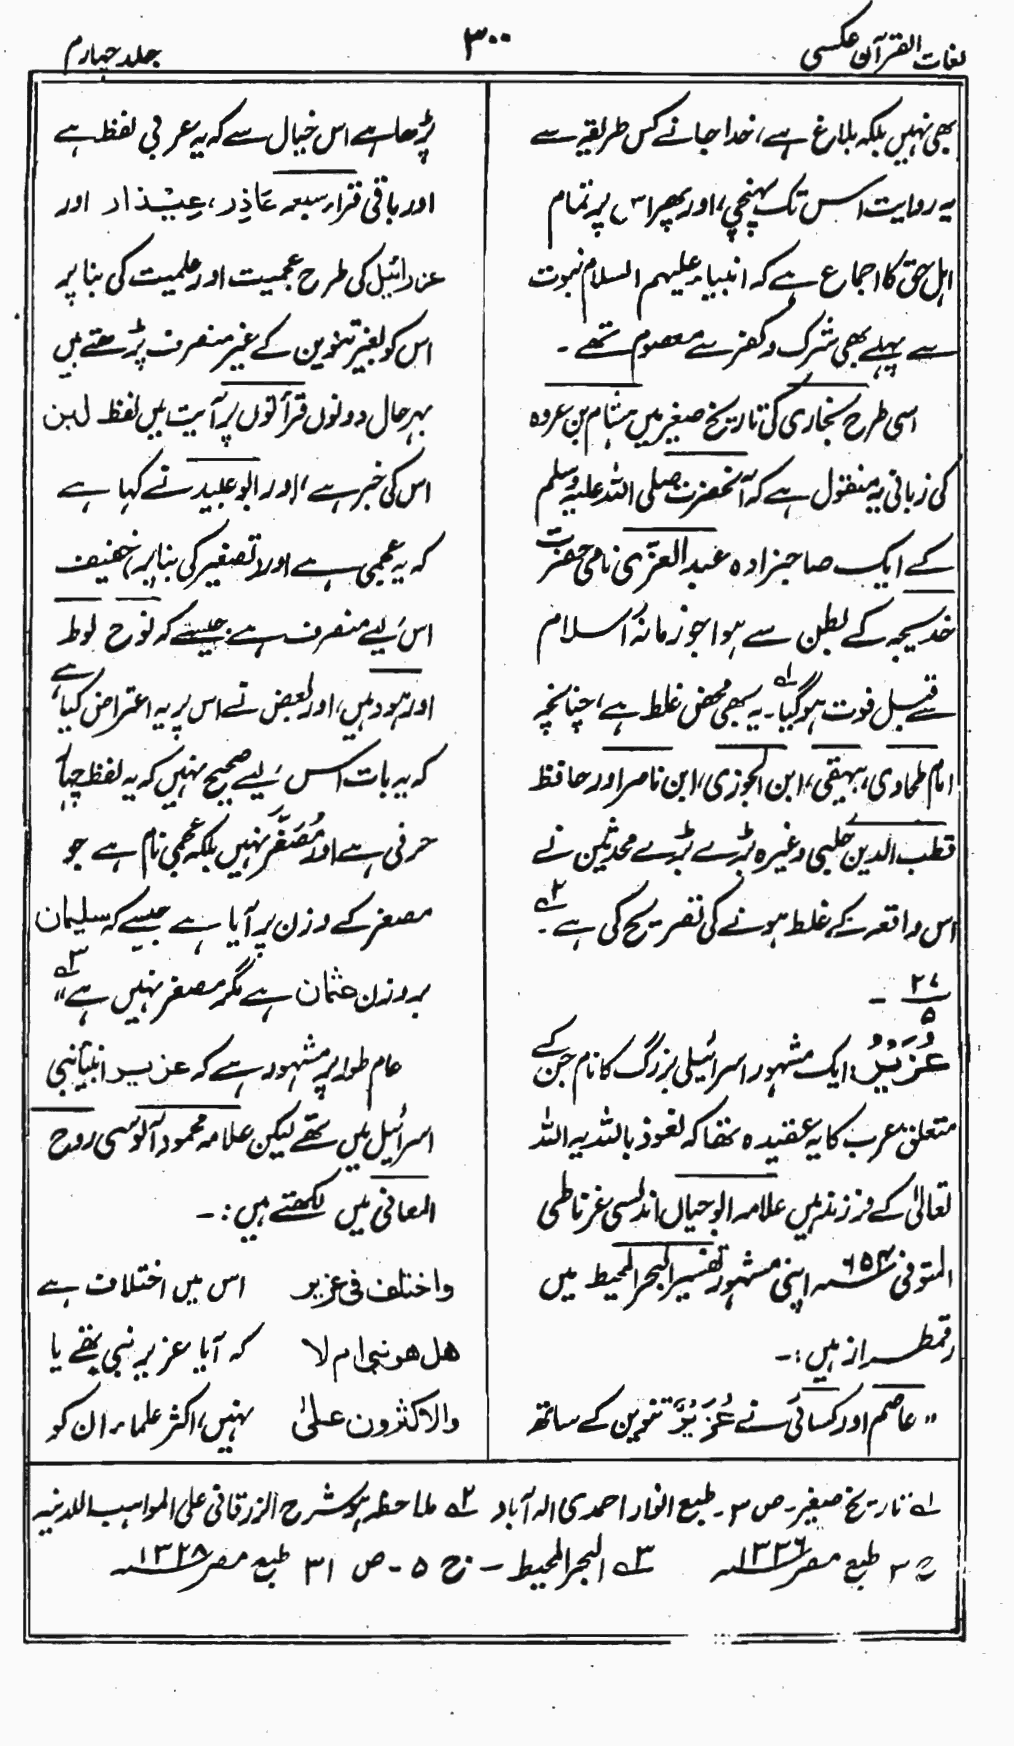 لغات القرآن عکسی
۳۰۰
جلد چہارم
بھی نہیں بلکہ بلاغ ہے، خدا جانے کس طریقہ سے
یہ روایت اس تک پہنچی، اور پھر اس پر تمام
اہل حق کا اجماع ہے کہ انبیاء علیہم السلام نبوت
سے پہلے بھی شرک و کفر سے معصوم تھے۔
اسی طرح بخاری کی تاریخ صغیر میں ہشام بن عروہ
کی زبانی یہ منقول ہے کہ آنحضرت صلی اللہ علیہ وسلم
کے ایک صاحبزادہ عبد العزّی نامی حضرت
خدیجہ کے بطن سے ہوا جو زمانہ اسلام
سے قبل فوت ہو گیا۔ لہ یہ بھی محض غلط ہے، چنانچہ
امام طحاوی، بیہقی، ابن الجوزی، ابن ناصر اور حافظ
قطب الدین حلبی وغیرہ بڑے بڑے محدثین نے
اس واقعہ کے غلط ہونے کی تصریح کی ہے ۲ہ۔
۲۷
۵
عُزَیْرُ: ایک مشہور اسرائیلی بزرگ کا نام جن کے
متعلق عرب کا یہ عقیدہ تھا کہ نعوذ باللہ یہ اللہ
تعالیٰ کے فرزند ہیں علامہ ابو حیاں اندلسی غرناطی
المتوفی ۶۵۴ھ اپنی مشہور تفسیر البحر المحیط میں
رقمطراز ہیں:۔
"عاصم اور کسائی نے عُزَیْرٌ تنوین کے ساتھ
پڑھا ہے اس خیال سے کہ یہ عربی لفظ ہے
اور باقی قراء سبعہ عَاذِر، عِیْذَار اور
عزرائیل کی طرح عجمیت اور علمیت کی بنا پر
اس کو بغیر تنوین کے غیر منصرف پڑھتے ہیں
بہرحال دونوں قرأتوں پر آیت میں لفظ ابن
اس کی خبر ہے، اور ابو عبید نے کہا ہے
کہ یہ عجمی ہے اور تصغیر کی بنا پر خفیف
اس لیے منصرف ہے جیسے کہ نوح لوط
اور ہود ہیں، اور بعض نے اس پر یہ اعتراض کیا ہے
کہ یہ بات اس لیے صحیح نہیں کہ یہ لفظ چہار
حرفی ہے اور مُصَغَّر نہیں بلکہ عجمی نام ہے جو
مصغر کے وزن پر آیا ہے جیسے کہ سلیمان
بروزن عثمان ہے مگر مصغر نہیں ہے" ۳ہ
عام طور پر مشہور ہے کہ عزیر انبیائے بنی
اسرائیل میں تھے لیکن علامہ محمود آلوسی روح
المعانی میں لکھتے ہیں:۔
واختلف فی عزیر اس میں اختلاف ہے
ھل ھو نبی ام لا کہ آیا عزیر نبی تھے یا
والاکثرون علیٰ نہیں، اکثر علماء ان کو
لہ تاریخ صغیر۔ ص ۳۔ طبع انوار احمدی الہ آباد ۲ہ ملاحظہ ہو شرح الزرقانی علی المواہب اللدنیہ
ج ۳ طبع مصر ۱۳۳۶ھ ۳ہ البحر المحیط ۔ ج ۵ ۔ ص ۳۱ طبع مصر ۱۳۲۸ھ